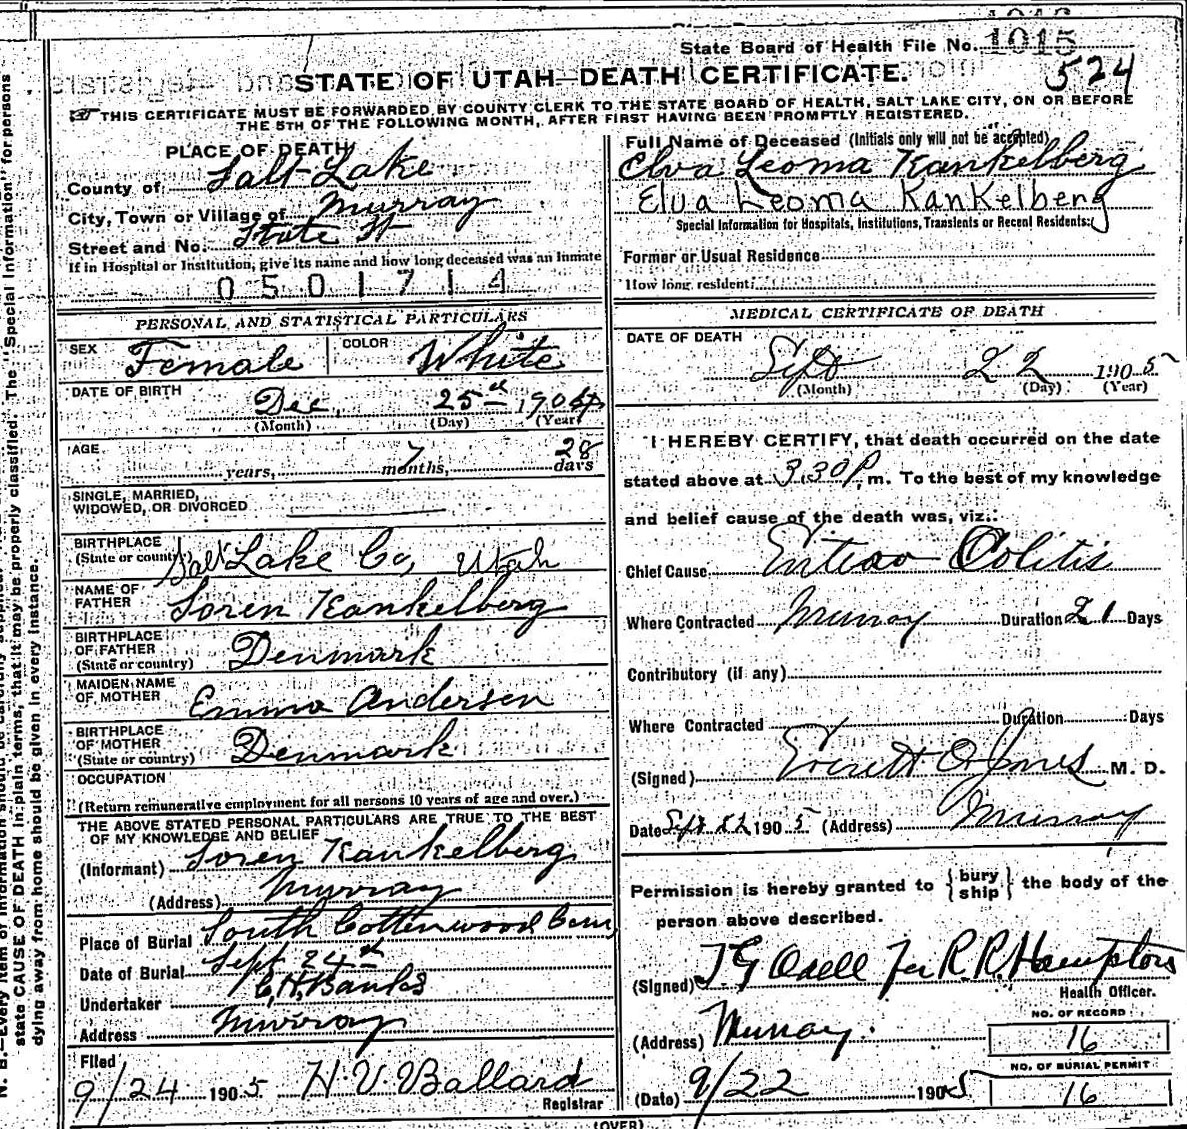 1015
State Board of Health File No. 1015
524
STATE OF UTAH—DEATH CERTIFICATE.
THIS CERTIFICATE MUST BE FORWARDED BY COUNTY CLERK TO THE STATE BOARD OF HEALTH, SALT LAKE CITY, ON OR BEFORE
THE 5TH OF THE FOLLOWING MONTH, AFTER FIRST HAVING BEEN PROMPTLY REGISTERED.
PLACE OF DEATH
County of Salt Lake
City, Town or Village of Murray
Street and No. State St
If in Hospital or Institution, give its name and how long deceased was an Inmate
0501714
PERSONAL AND STATISTICAL PARTICULARS
SEX Female COLOR White
DATE OF BIRTH
Dec. 25th 1904
(Month) (Day) (Year)
AGE
years, 7 months, 28 days
SINGLE, MARRIED,
WIDOWED, OR DIVORCED
BIRTHPLACE
(State or country) Salt Lake Co, Utah
NAME OF
FATHER Soren Kankelberg
BIRTHPLACE
OF FATHER
(State or country) Denmark
MAIDEN NAME
OF MOTHER Emma Andersen
BIRTHPLACE
OF MOTHER
(State or country) Denmark
OCCUPATION
(Return remunerative employment for all persons 10 years of age and over.)
THE ABOVE STATED PERSONAL PARTICULARS ARE TRUE TO THE BEST
OF MY KNOWLEDGE AND BELIEF
(Informant) Soren Kankelberg
(Address) Murray
Place of Burial South Cottonwood Cem
Date of Burial Sept 24th
Undertaker C.H. Banks
Address Murray
Filed
9/24 1905 H. V. Ballard
Registrar
Full Name of Deceased (Initials only will not be accepted)
Elva Leoma Kankelberg
Elva Leoma Kankelberg
Special Information for Hospitals, Institutions, Transients or Recent Residents:
Former or Usual Residence
How long resident:
MEDICAL CERTIFICATE OF DEATH
DATE OF DEATH
Sept 22 1905
(Month) (Day) (Year)
I HEREBY CERTIFY, that death occurred on the date
stated above at 3.30 P. m. To the best of my knowledge
and belief cause of the death was, viz.:
Chief Cause Entero Colitis
Where Contracted Murray Duration 21 Days
Contributory (if any)
Where Contracted Duration Days
(Signed) Everett O Jones M. D.
Date Sept 22 1905 (Address) Murray
Permission is hereby granted to {bury ship} the body of the
person above described.
(Signed) T G Odell for R R. Hampton
Health Officer.
(Address) Murray.
NO. OF RECORD
16
NO. OF BURIAL PERMIT
(Date) 9/22 1905 16
(OVER)
state CAUSE OF DEATH in plain terms, that it may be properly classified. The "Special Information" for persons
dying away from home should be given in every instance.